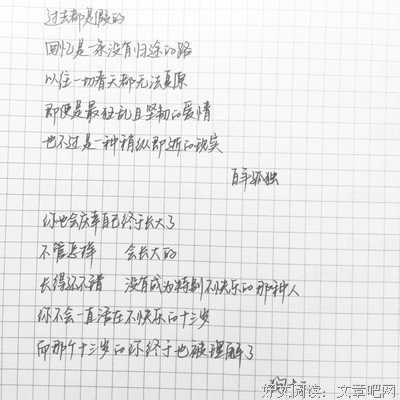 过去都是假的
回忆是一条没有归途的路
以往一切春天都无法复原
即使是最狂乱且坚韧的爱情
也不过是一种稍纵即逝的现实
百年孤独
你也会庆幸自己终于长大了
不管怎样 会长大的
长得还不错 没有成为特别不快乐的那种人
你不会一直活在不快乐的十三岁
而那个十三岁的你终于也被理解了
好文阅读：文章吧网